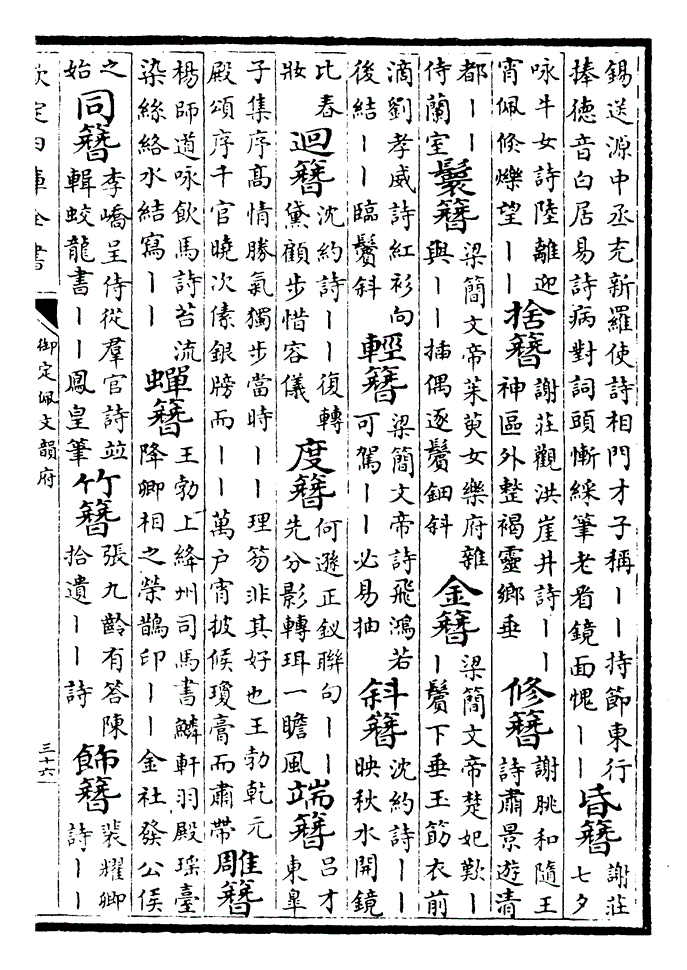 錫送源中丞充新羅使詩相門才子稱丨丨持節東行
捧德音白居易詩病對詞頭慚綵筆老看鏡面愧丨丨
昏簪
謝莊
七夕
咏牛女詩陸離迎
宵佩倏爍望丨丨
捨簪
謝莊觀洪崖井詩丨丨
神區外整褐靈鄉垂
修簪
謝朓和隨王
詩肅景遊清
都丨丨
侍蘭室
鬟簪
梁簡文帝茱萸女樂府雜
與丨丨插偶逐鬢鈿斜
金簪
梁簡文帝楚妃歎丨
丨鬢下垂玉筯衣前
滴劉孝威詩紅衫向
後結丨丨臨鬢斜
輕簪
梁簡文帝詩飛鴻若
可駕丨丨必易抽
斜簪
沈約詩丨丨
映秋水開鏡
比春
妝
迴簪
沈約詩丨丨復轉
黛顧步惜容儀
度簪
何遜正釵聯句丨丨
先分影轉珥一瞻風
端簪
呂才
東皐
子集序髙情勝氣獨步當時丨丨理笏非其好也王勃乾元
殿頌序千官曉次傃銀牓而丨丨萬户宵披候瓊膏而肅帶
雕簪
楊師道咏飲馬詩苔流
染絲絡水結寫丨丨
蟬簪
王勃上絳州司馬書鱗軒羽殿瑤臺
降卿相之榮鵲印丨丨金社發公侯
之
始
同簪
李嶠呈侍從羣官詩並
輯蛟龍書丨丨鳳皇筆
竹簪
張九齡有答陳
拾遺丨丨詩
飾簪
裴耀卿
詩丨丨
欽定四庫全書
御定佩文韻府
三十六